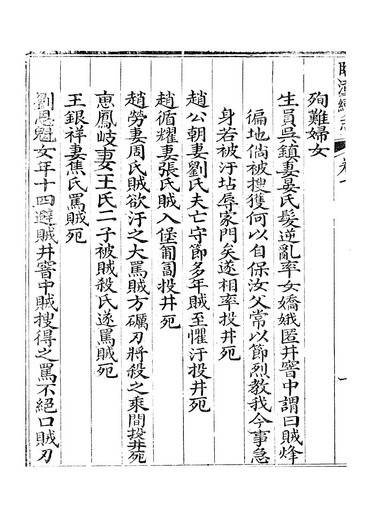 殉難婦女
生員吳鎮妻晏氏髮逆亂率女嬌娥匿井窖中謂曰賊烽
徧地倘被搜獲何以自保汝父常以節烈教我今事急
身若被汙坫辱家門矣遂相率投井死
趙公朝妻劉氏夫亡守節多年賊至懼汙投井死
趙循耀妻張氏賊入堡匍匐投井死
趙勞妻周氏賊欲汙之大罵賊方礪刃將殺之乘間投井死
惠鳳岐妻王氏二子被賊殺氏遂罵賊死
王銀祥妻焦氏罵賊死
劉恩魁女年十四避賊井窖中賊搜得之罵不絕口賊刃